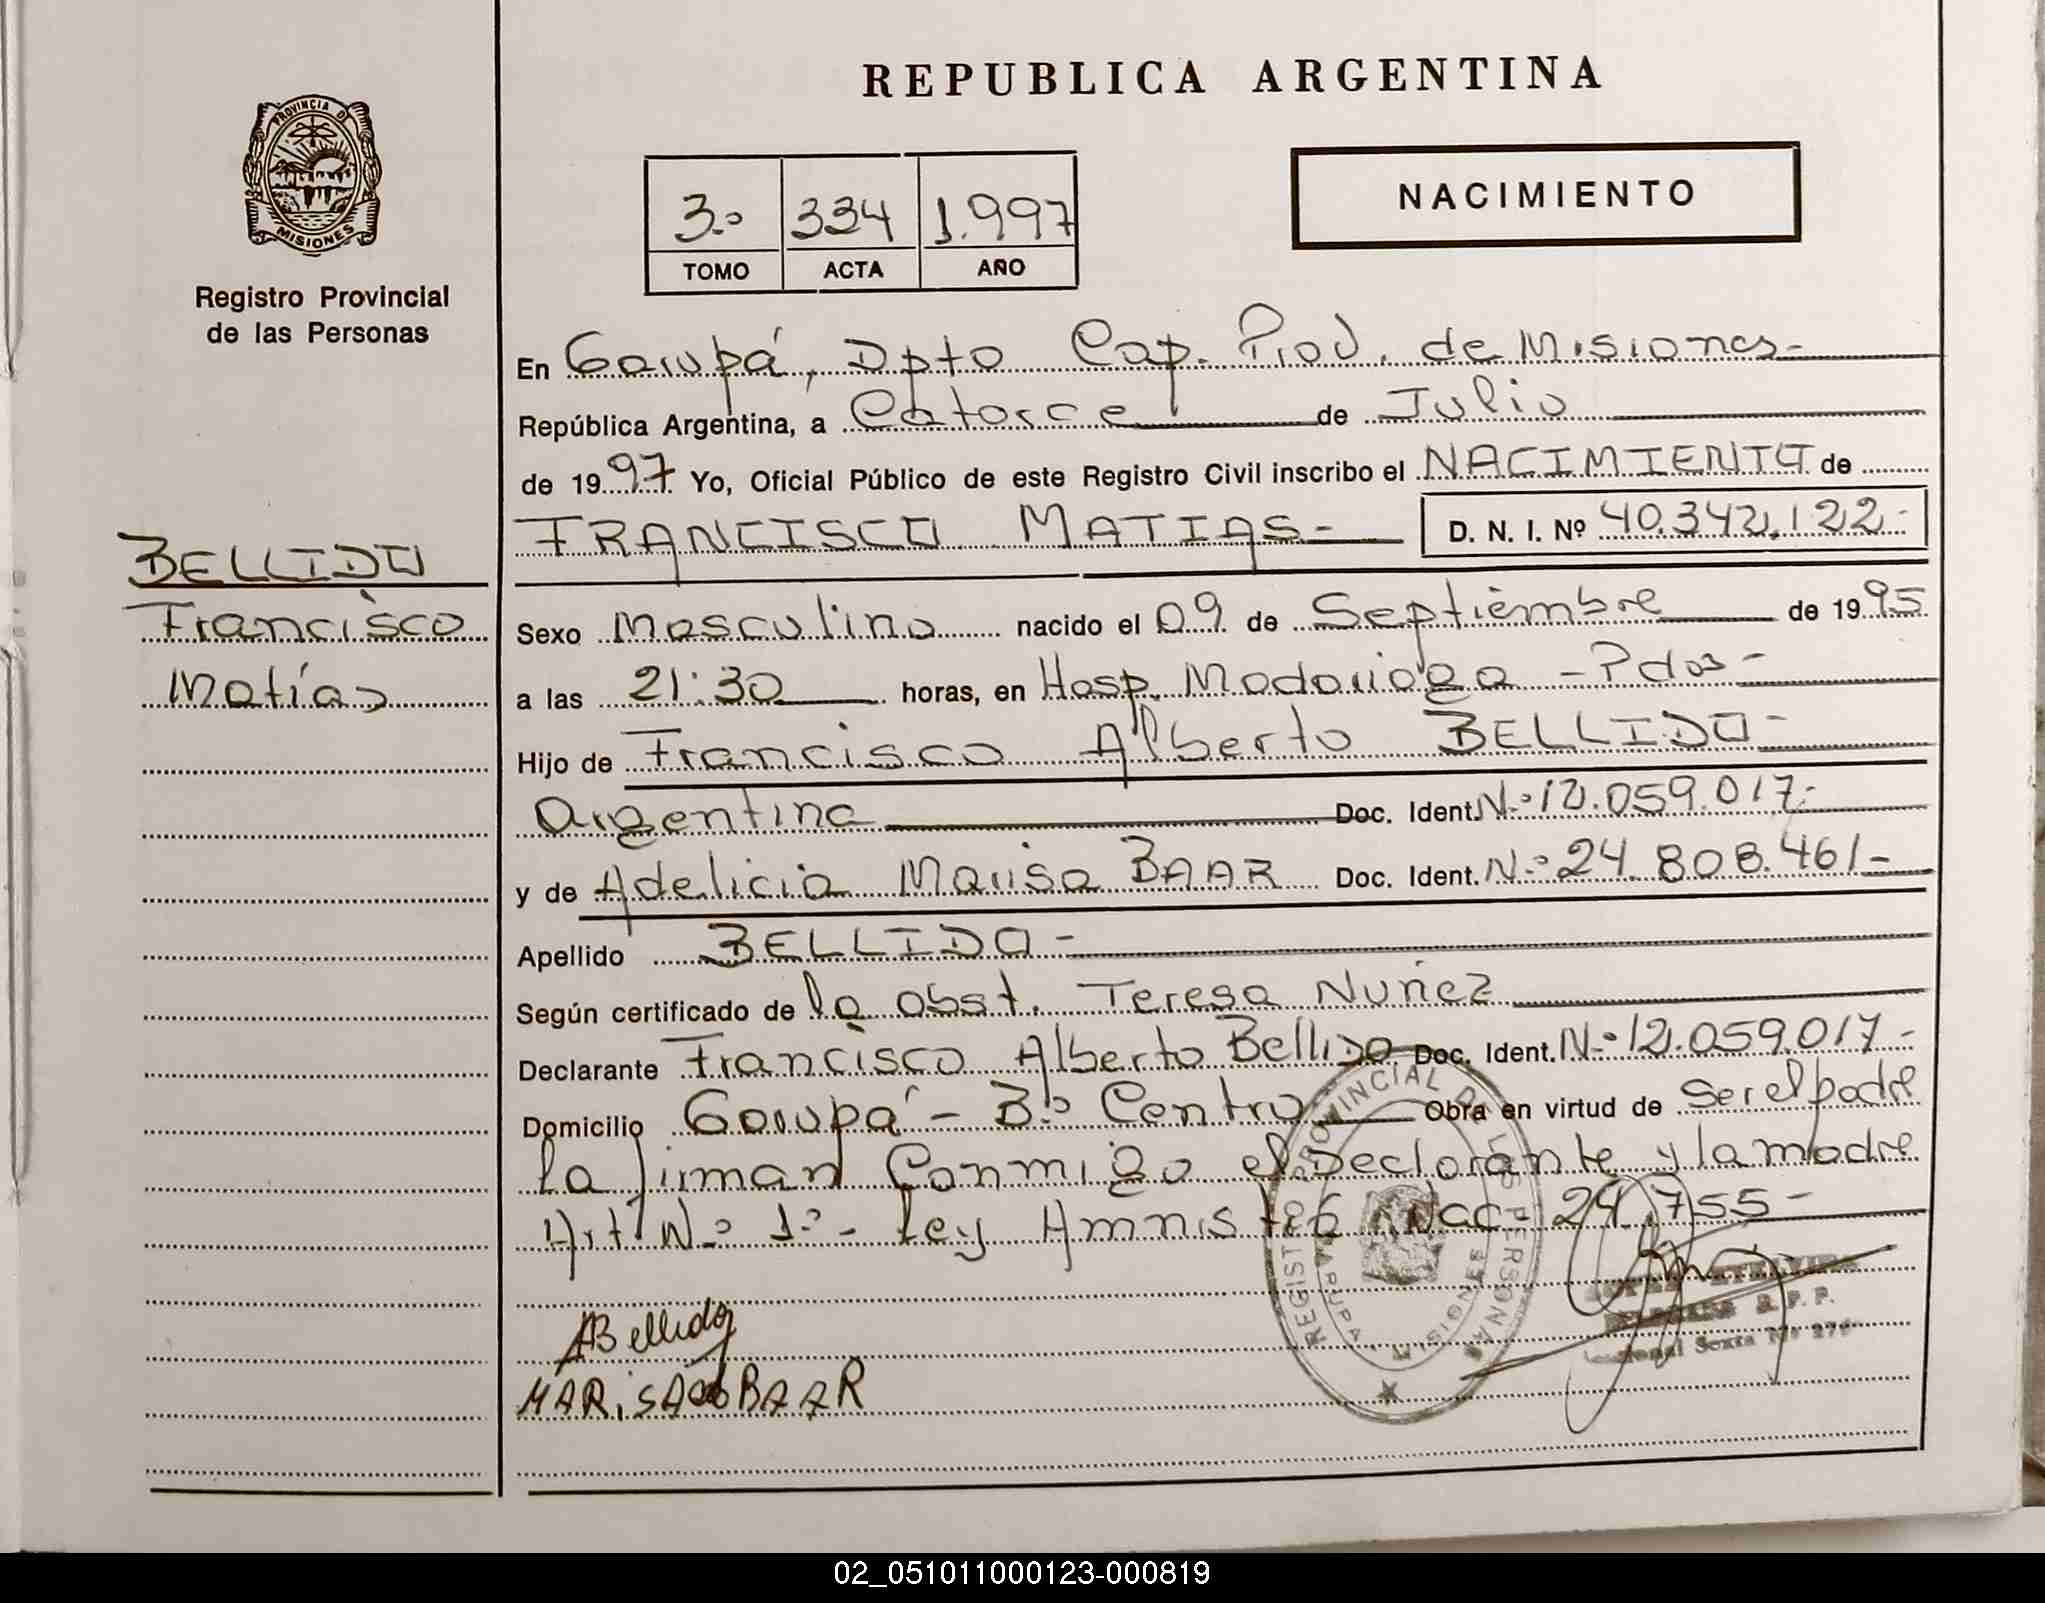 REPUBLICA ARGENTINA
PROVINCIA DE
MISIONES
Registro Provincial
de las Personas
3.º 334 1.997
TOMO ACTA AÑO
NACIMIENTO
En Garupá, Dpto Cap. Prov. de Misiones-
República Argentina, a Catorce de Julio
de 1997 Yo, Oficial Público de este Registro Civil inscribo el NACIMIENTO de
FRANCISCO MATIAS- D. N. I. Nº 40.342.122-
BELLIDO
Francisco
Matías
Sexo Masculino nacido el 09 de Septiembre de 1995
a las 21:30 horas, en Hosp. Madariaga - Pdas-
Hijo de Francisco Alberto BELLIDO-
Argentina Doc. Ident. N.º 12.059.017-
y de Adelicia Marisa BAAR Doc. Ident. N.º 24.808.461-
Apellido BELLIDO-
Según certificado de la obst. Teresa Nuñez
Declarante Francisco Alberto Bellido Doc. Ident. N.º 12.059.017-
Domicilio Garupá - Bº Centro Obra en virtud de ser el padre
la firman Conmigo el Declarante y la madre
Art N.º 1º - Ley Amnistía Nac. 24.755-
REGISTRO PROVINCIAL DE LAS PERSONAS
GARUPA MISIONES
ABellido
MARiSA BAAR
02_051011000123-000819